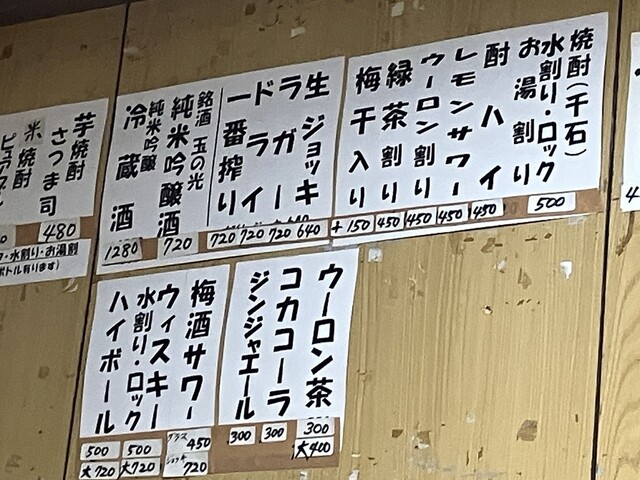 焼酎(千石)
水割り・ロック
お湯割り
500
酎ハイ
450
レモンサワー
450
ウーロン割り
450
緑茶割り
450
梅干入り
+150
生ジョッキ
640
ラガー
720
ドライ
720
一番搾り
720
銘酒 玉の光
純米吟醸酒
720
純米吟醸
冷蔵酒
1280
芋焼酎
さつま司
480
米焼酎
水割り・お湯割
ボトル有ります)
ウーロン茶
300
大400
コカコーラ
300
ジンジャエール
300
梅酒サワー
グラス 450
ジョッキ 720
ウィスキー
水割り・ロック
500
大720
ハイボール
500
大720